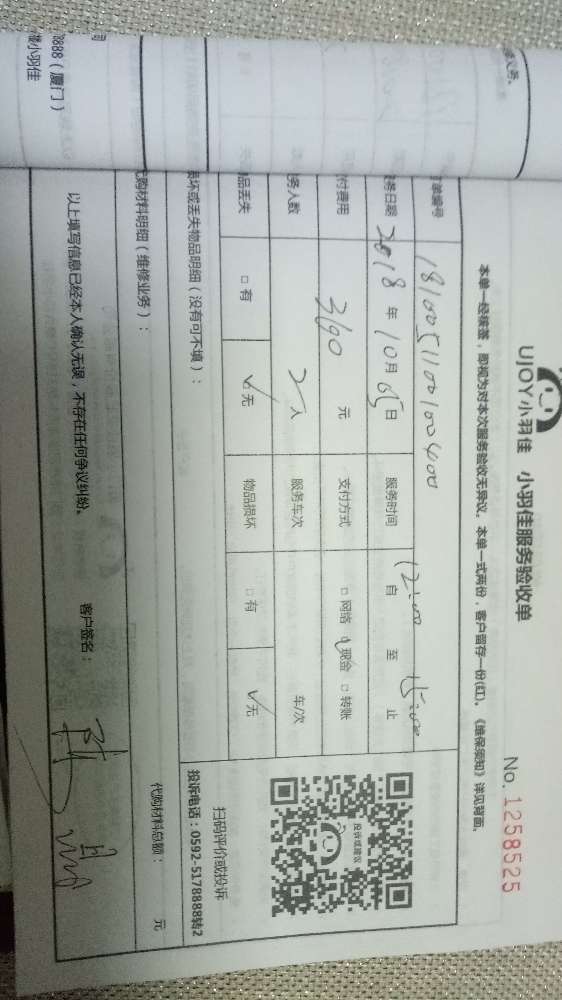 UJOY小羽佳 小羽佳服务验收单
No. 1258525
本单一经接签，即视为对本次服务验收无异议。本单一式两份，客户留存一份(红)。《维保须知》详见背面。
单编号 1810051100100400
务日期 2018 年 10 月 05 日 服务时间 12:00 自 至 15:00 止
付费用 360 元 支付方式 □网络 ☑现金 □转账
务人数 2 人 服务车次 车/次
品丢失 □有 ☑无 物品损坏 □有 ☑无
扫码评价或投诉
投诉或建议
投诉电话：0592-5178888转2
损坏或丢失物品明细（没有可不填）：
代购材料明细（维修业务）：
代购材料总额： 元
以上填写信息已经本人确认无误，不存在任何争议纠纷。 客户签名：
8888（厦门）
小羽佳